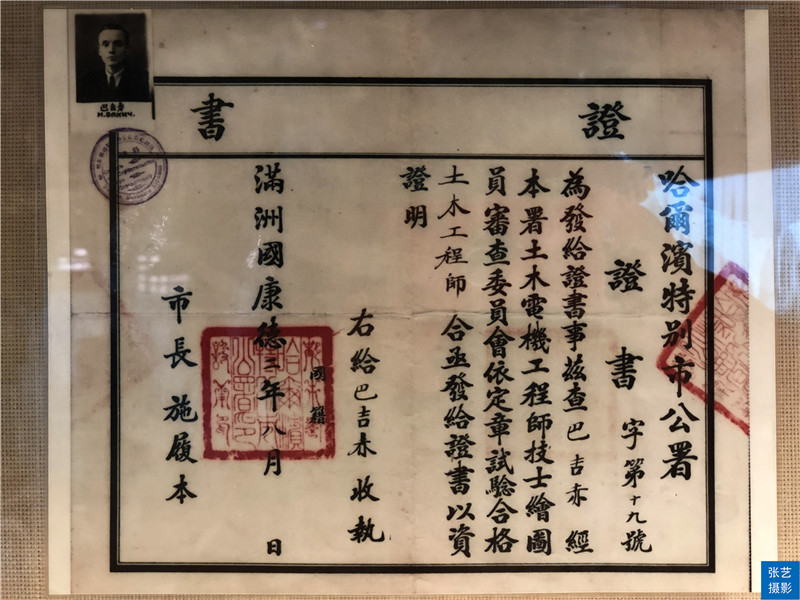 證書
哈爾濱特别市公署
證書 字第十九號
為發給證書事茲查巴吉赤 經
本署土木電機工程師技士繪圖
員審查委員會依定章試驗合格
土木工程師 合亟發給證書以資
證明
右給巴吉赤收執
國籍
滿洲國康德三年八月 日
市長 施履本
巴吉赤
张艺
摄影